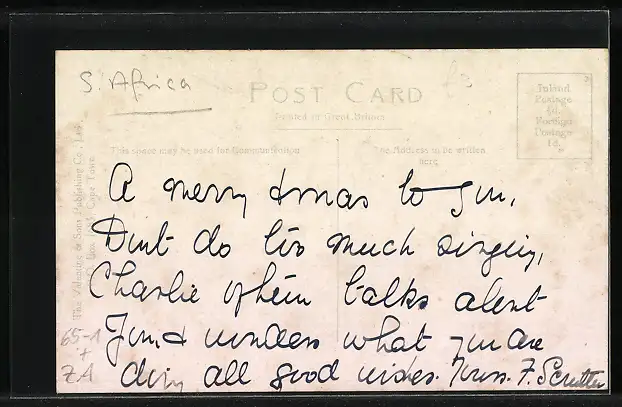 S. Africa
POST CARD
Printed in Great Britain
Inland
Postage
½d.
Foreign
Postage
1d.
This space may be used for Communication
The Address to be written
here
The Valentine & Sons Publishing Co., Ltd.,
Cape Town
A merry Xmas to you,
Dont do too much singing,
Charlie often talks about
You & wonders what you are
doing all good wishes. Yours. F.
65-1
+
ZA